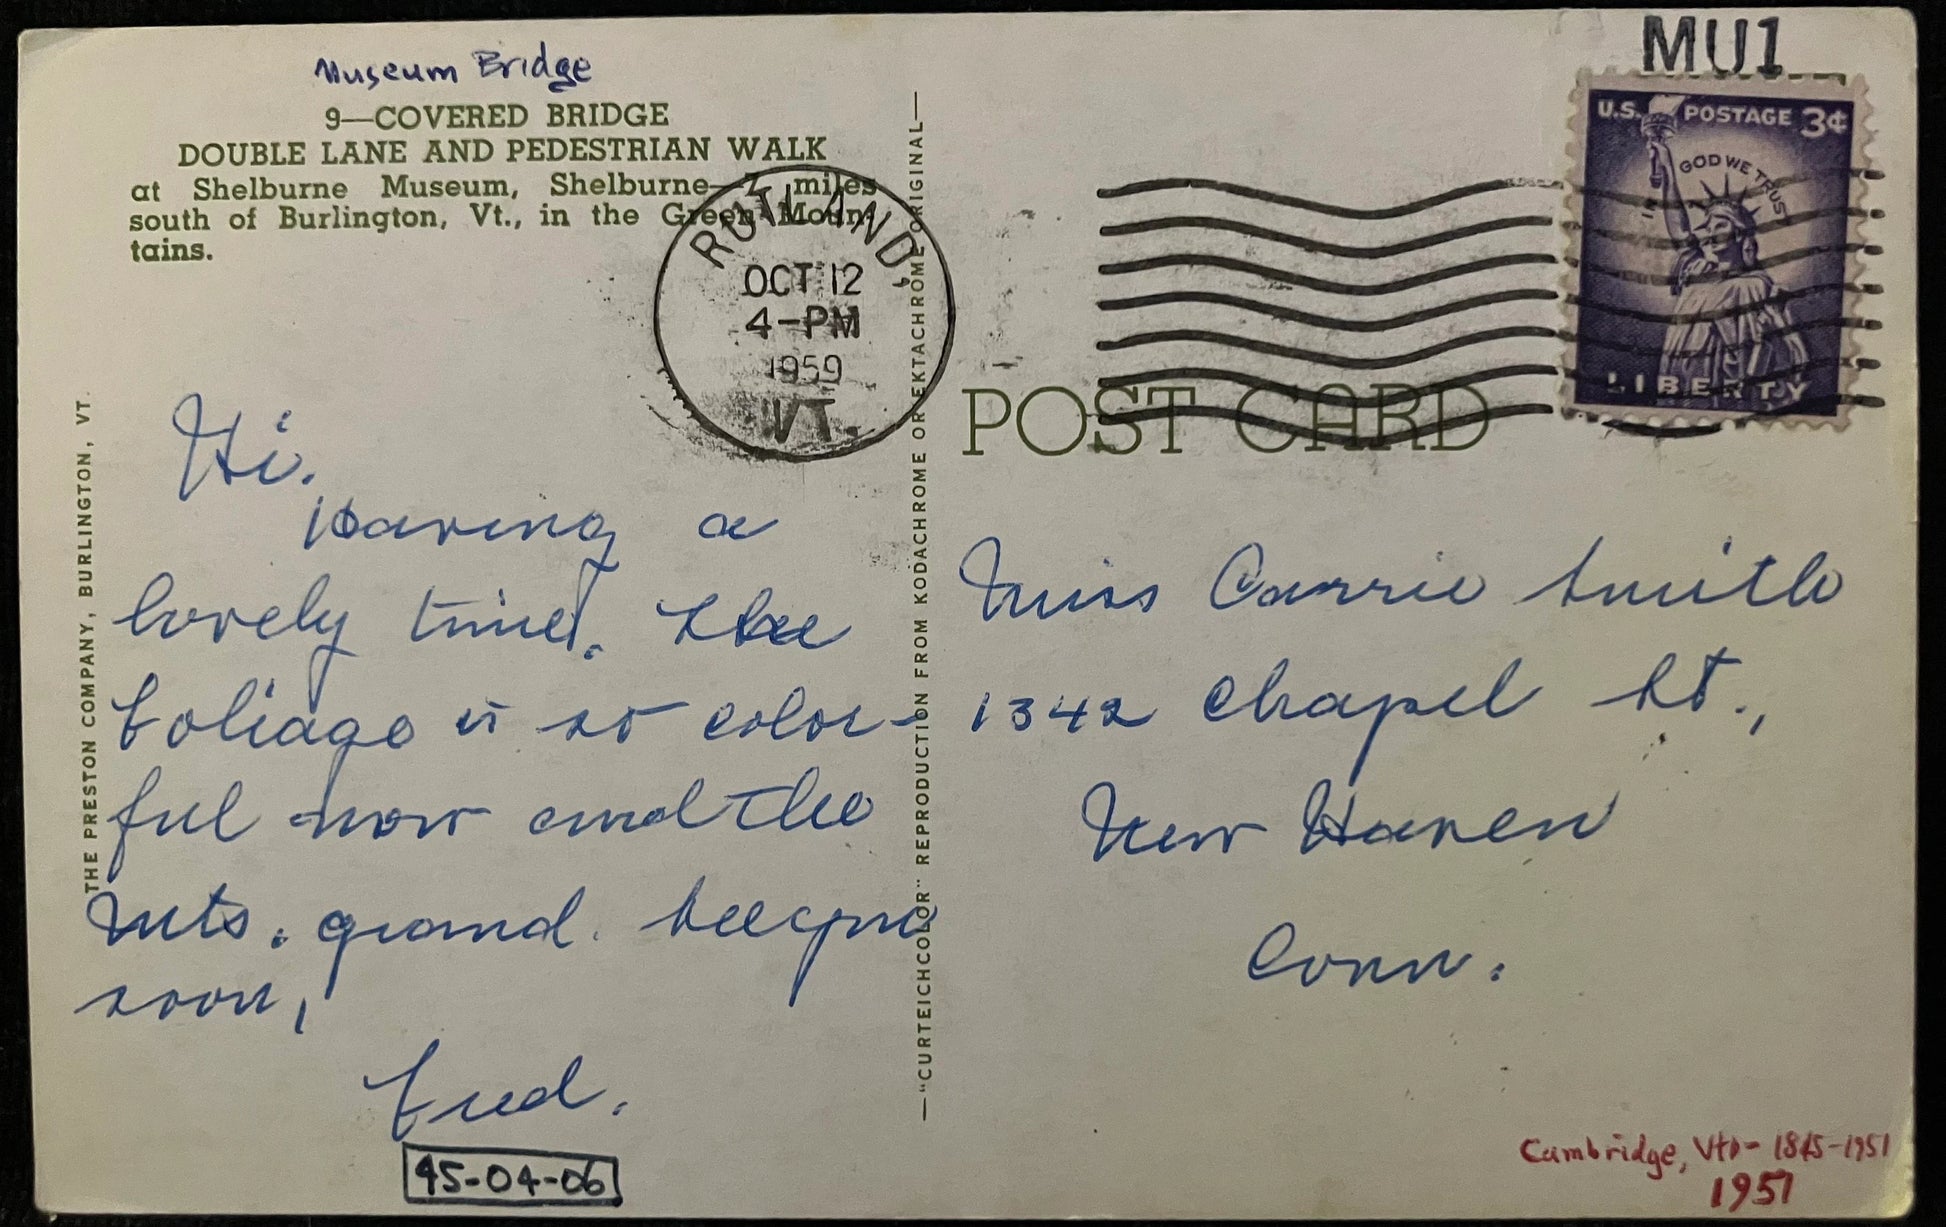 Museum Bridge
9—COVERED BRIDGE
DOUBLE LANE AND PEDESTRIAN WALK
at Shelburne Museum, Shelburne—7 miles
south of Burlington, Vt., in the Green Moun-
tains.
RUTLAND,
OCT 12
4-PM
1959
VT.
MU1
U.S. POSTAGE 3¢
IN GOD WE TRUST
LIBERTY
POST CARD
THE PRESTON COMPANY, BURLINGTON, VT.
Hi.
Having a
lovely time. The
foliage is so color-
ful now and the
Mts. grand. See you
soon,
Fred.
45-04-06
—"CURTEICHCOLOR" REPRODUCTION FROM KODACHROME OR EKTACHROME ORIGINAL—
Miss Carrie Smith
1342 Chapel St.,
New Haven
Conn.
Cambridge, Vt - 1845-1951
1951